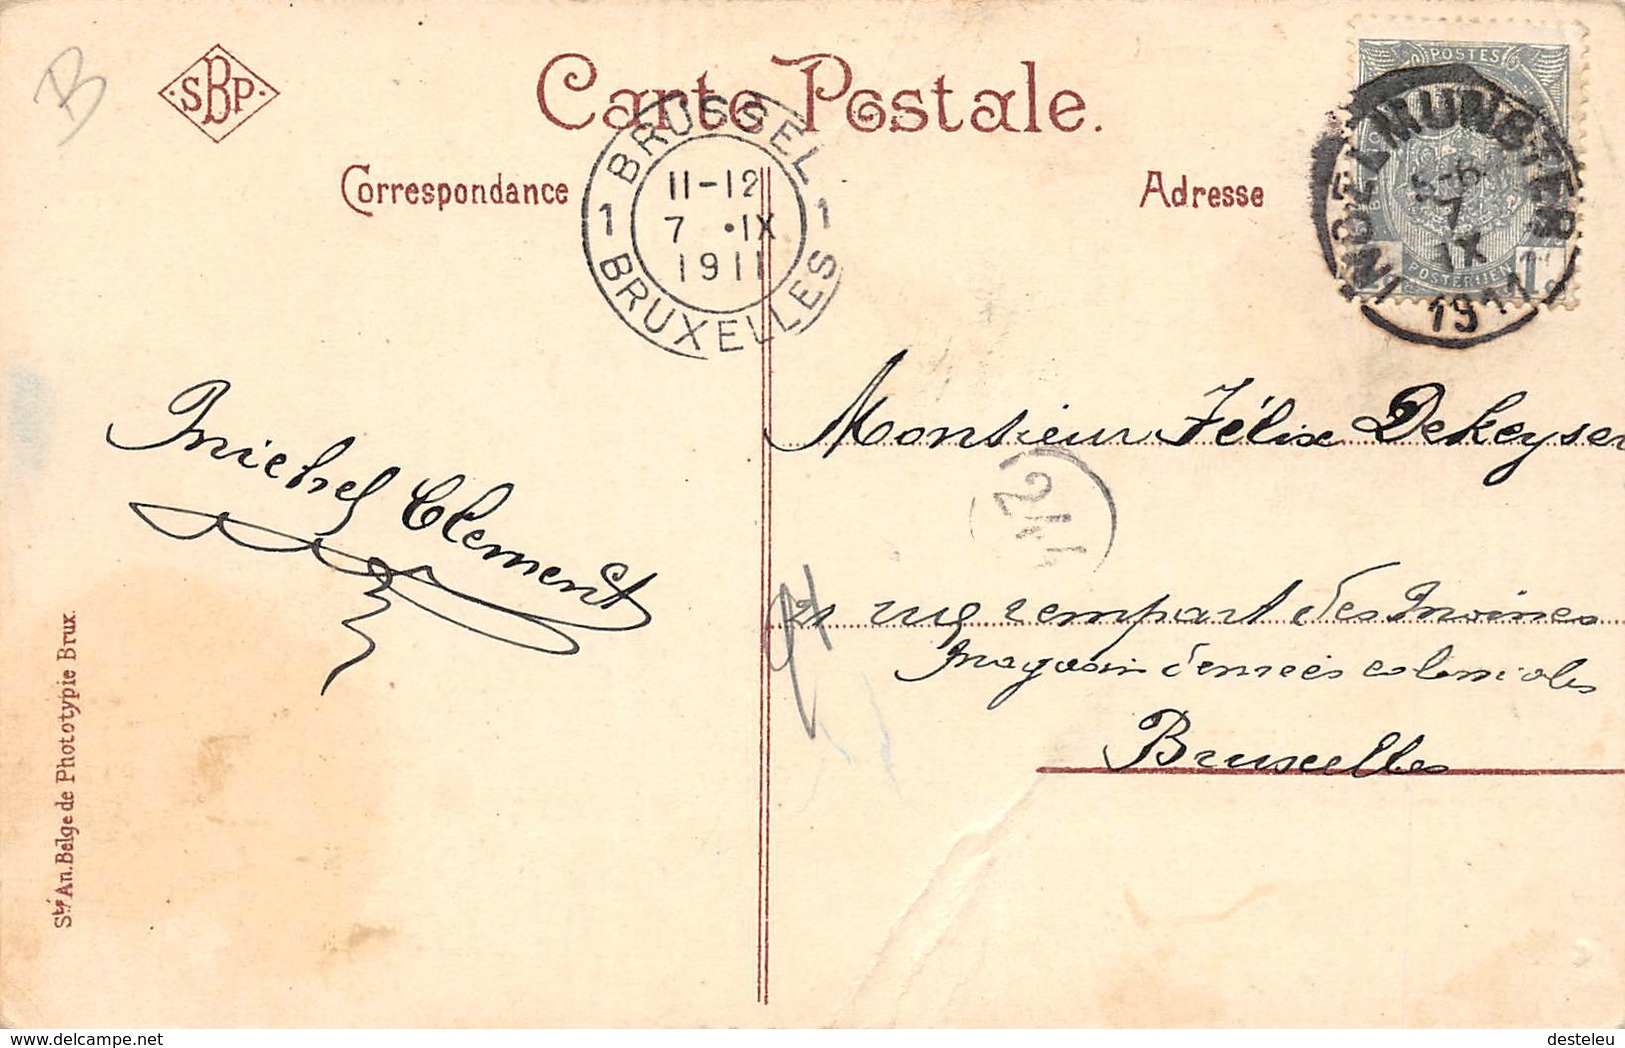 B
SBP
Carte Postale.
Correspondance
Adresse
BRUSSEL
1 11-12 1
7 •IX
1911
BRUXELLES
POSTES
INGELMUNSTER
5-6
7
IX
1911
POSTERIJEN
1
Michel Clement
Monsieur Félix Dekeyser
24
21 rue rempart des Moines
Magasin denrées coloniales
Bruxelles
Sté An. Belge de Phototypie Brux.
www.delcampe.net
desteleu